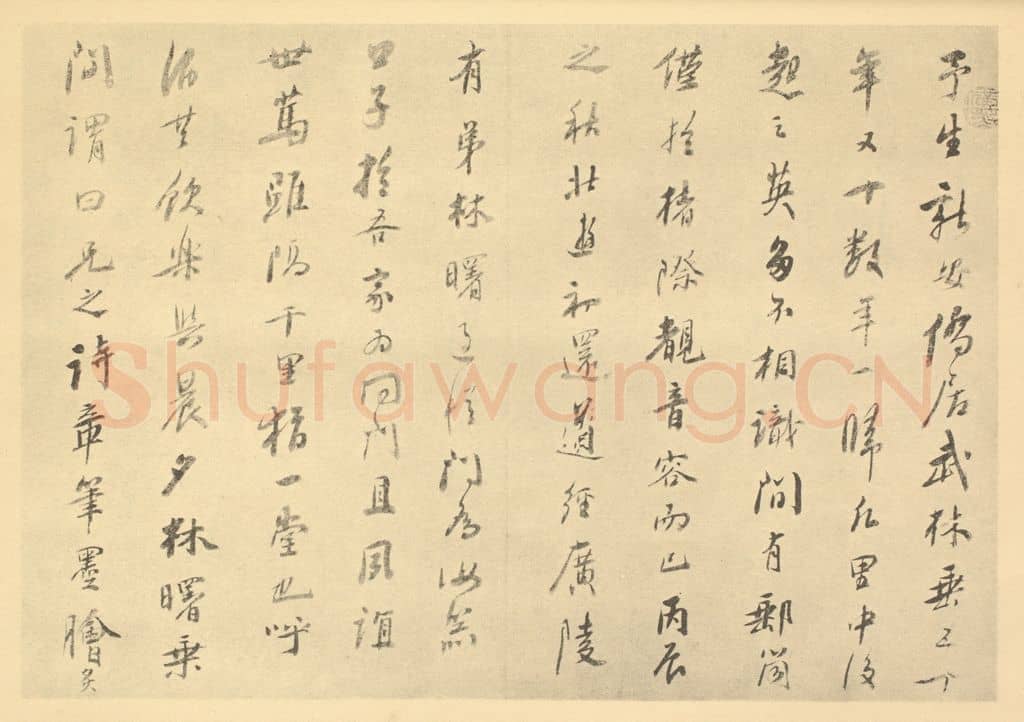 予生新安僑居武林垂三十
年又十數年一歸凡里中後
起之英多不相識間有郵筒
僅於楮際覩音容而已丙辰
之秋北遊初還道經廣陵
有弟林曙
口子於吾家為同門且夙誼
世篤雖隔千里楷一堂也呼
共飲樂與晨夕林曙乘
間謂曰兄之詩章筆墨膾炙
Shufawang.CN